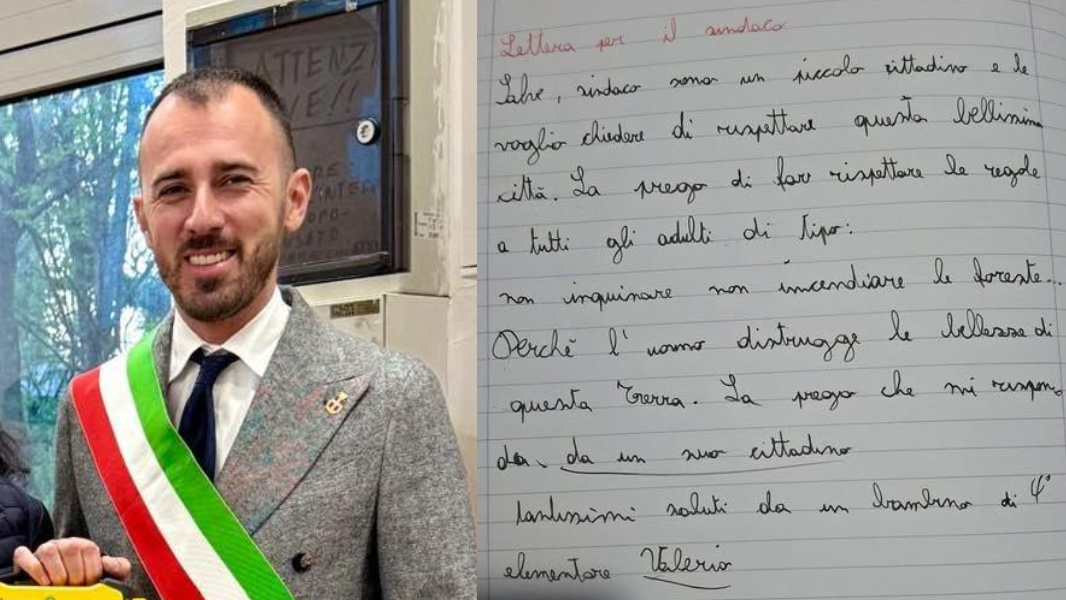 ATTENZ
VE!!
Lettera per il sindaco
Salve, sindaco sono un piccolo cittadino e le
voglio chiedere di rispettare questa bellissima
città. La prego di far rispettare le regole
a tutti gli adulti di tipo:
non inquinare non incendiare le foreste...
Perchè l'uomo distrugge le bellezze di
questa Terra. La prego che mi rispon
da da un suo cittadino
tantissimi saluti da un bambino di 4°
elementare Valerio